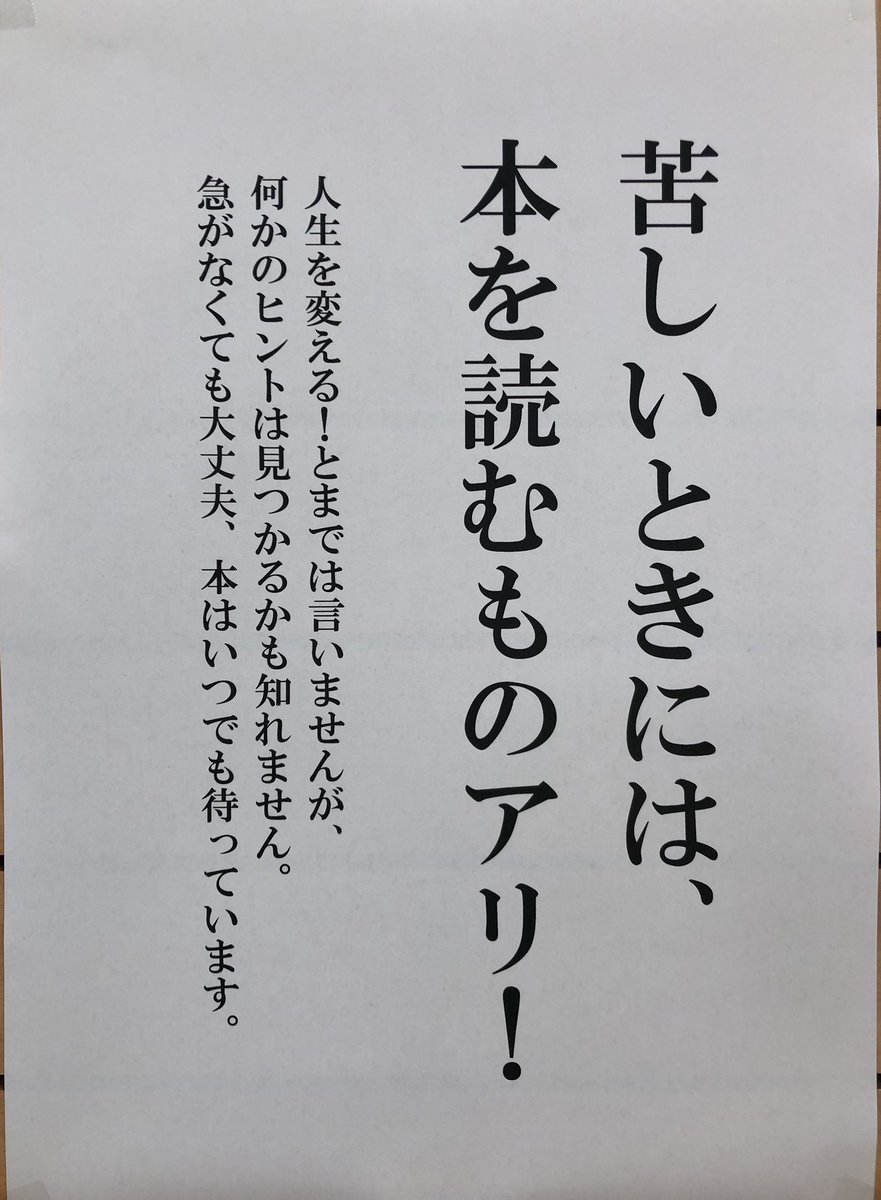 苦しいときには、
本を読むものアリ！
人生を変える！とまでは言いませんが、
何かのヒントは見つかるかも知れません。
急がなくても大丈夫、本はいつでも待っています。